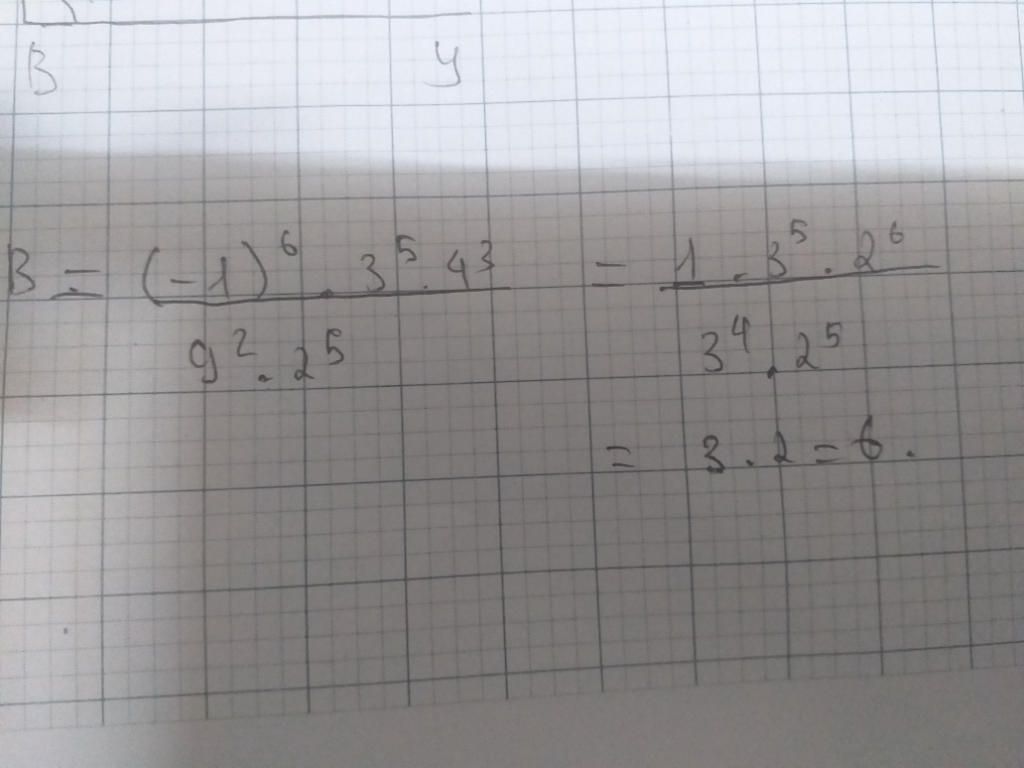 B y
B = (-1)⁶ . 3⁵ . 4³ / 9² . 2⁵ = 1 . 3⁵ . 2⁶ / 3⁴ . 2⁵
= 3 . 2 = 6 .